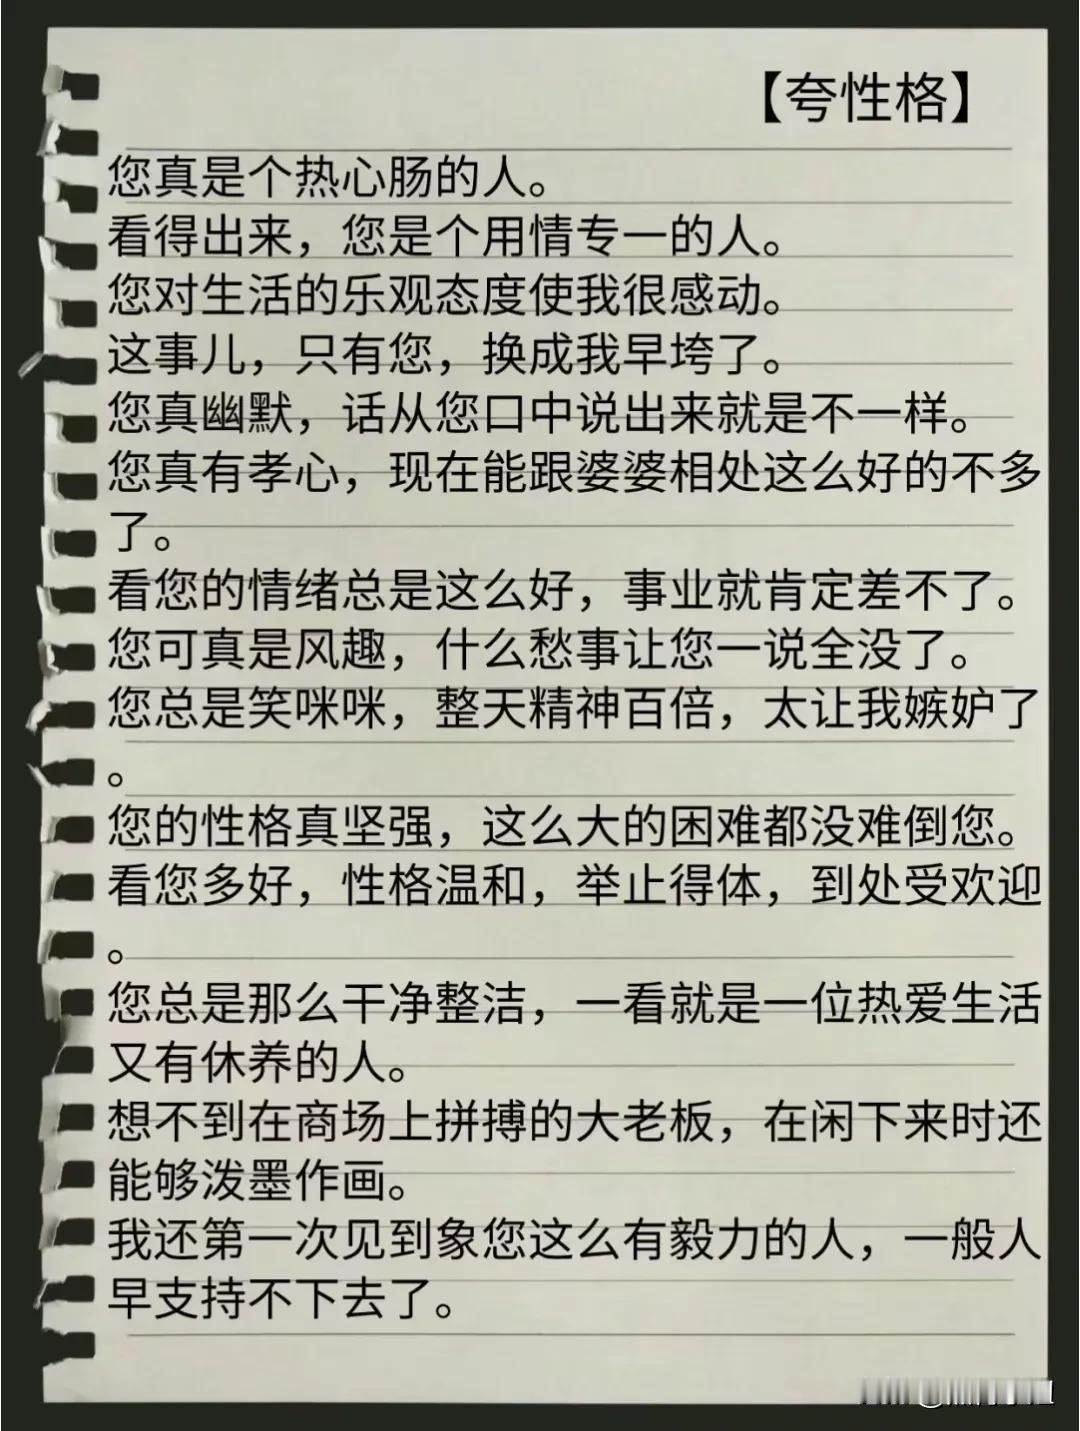 【夸性格】
您真是个热心肠的人。
看得出来，您是个用情专一的人。
您对生活的乐观态度使我很感动。
这事儿，只有您，换成我早垮了。
您真幽默，话从您口中说出来就是不一样。
您真有孝心，现在能跟婆婆相处这么好的不多
了。
看您的情绪总是这么好，事业就肯定差不了。
您可真是风趣，什么愁事让您一说全没了。
您总是笑咪咪，整天精神百倍，太让我嫉妒了
。
您的性格真坚强，这么大的困难都没难倒您。
看您多好，性格温和，举止得体，到处受欢迎
。
您总是那么干净整洁，一看就是一位热爱生活
又有休养的人。
想不到在商场上拼搏的大老板，在闲下来时还
能够泼墨作画。
我还第一次见到象您这么有毅力的人，一般人
早支持不下去了。